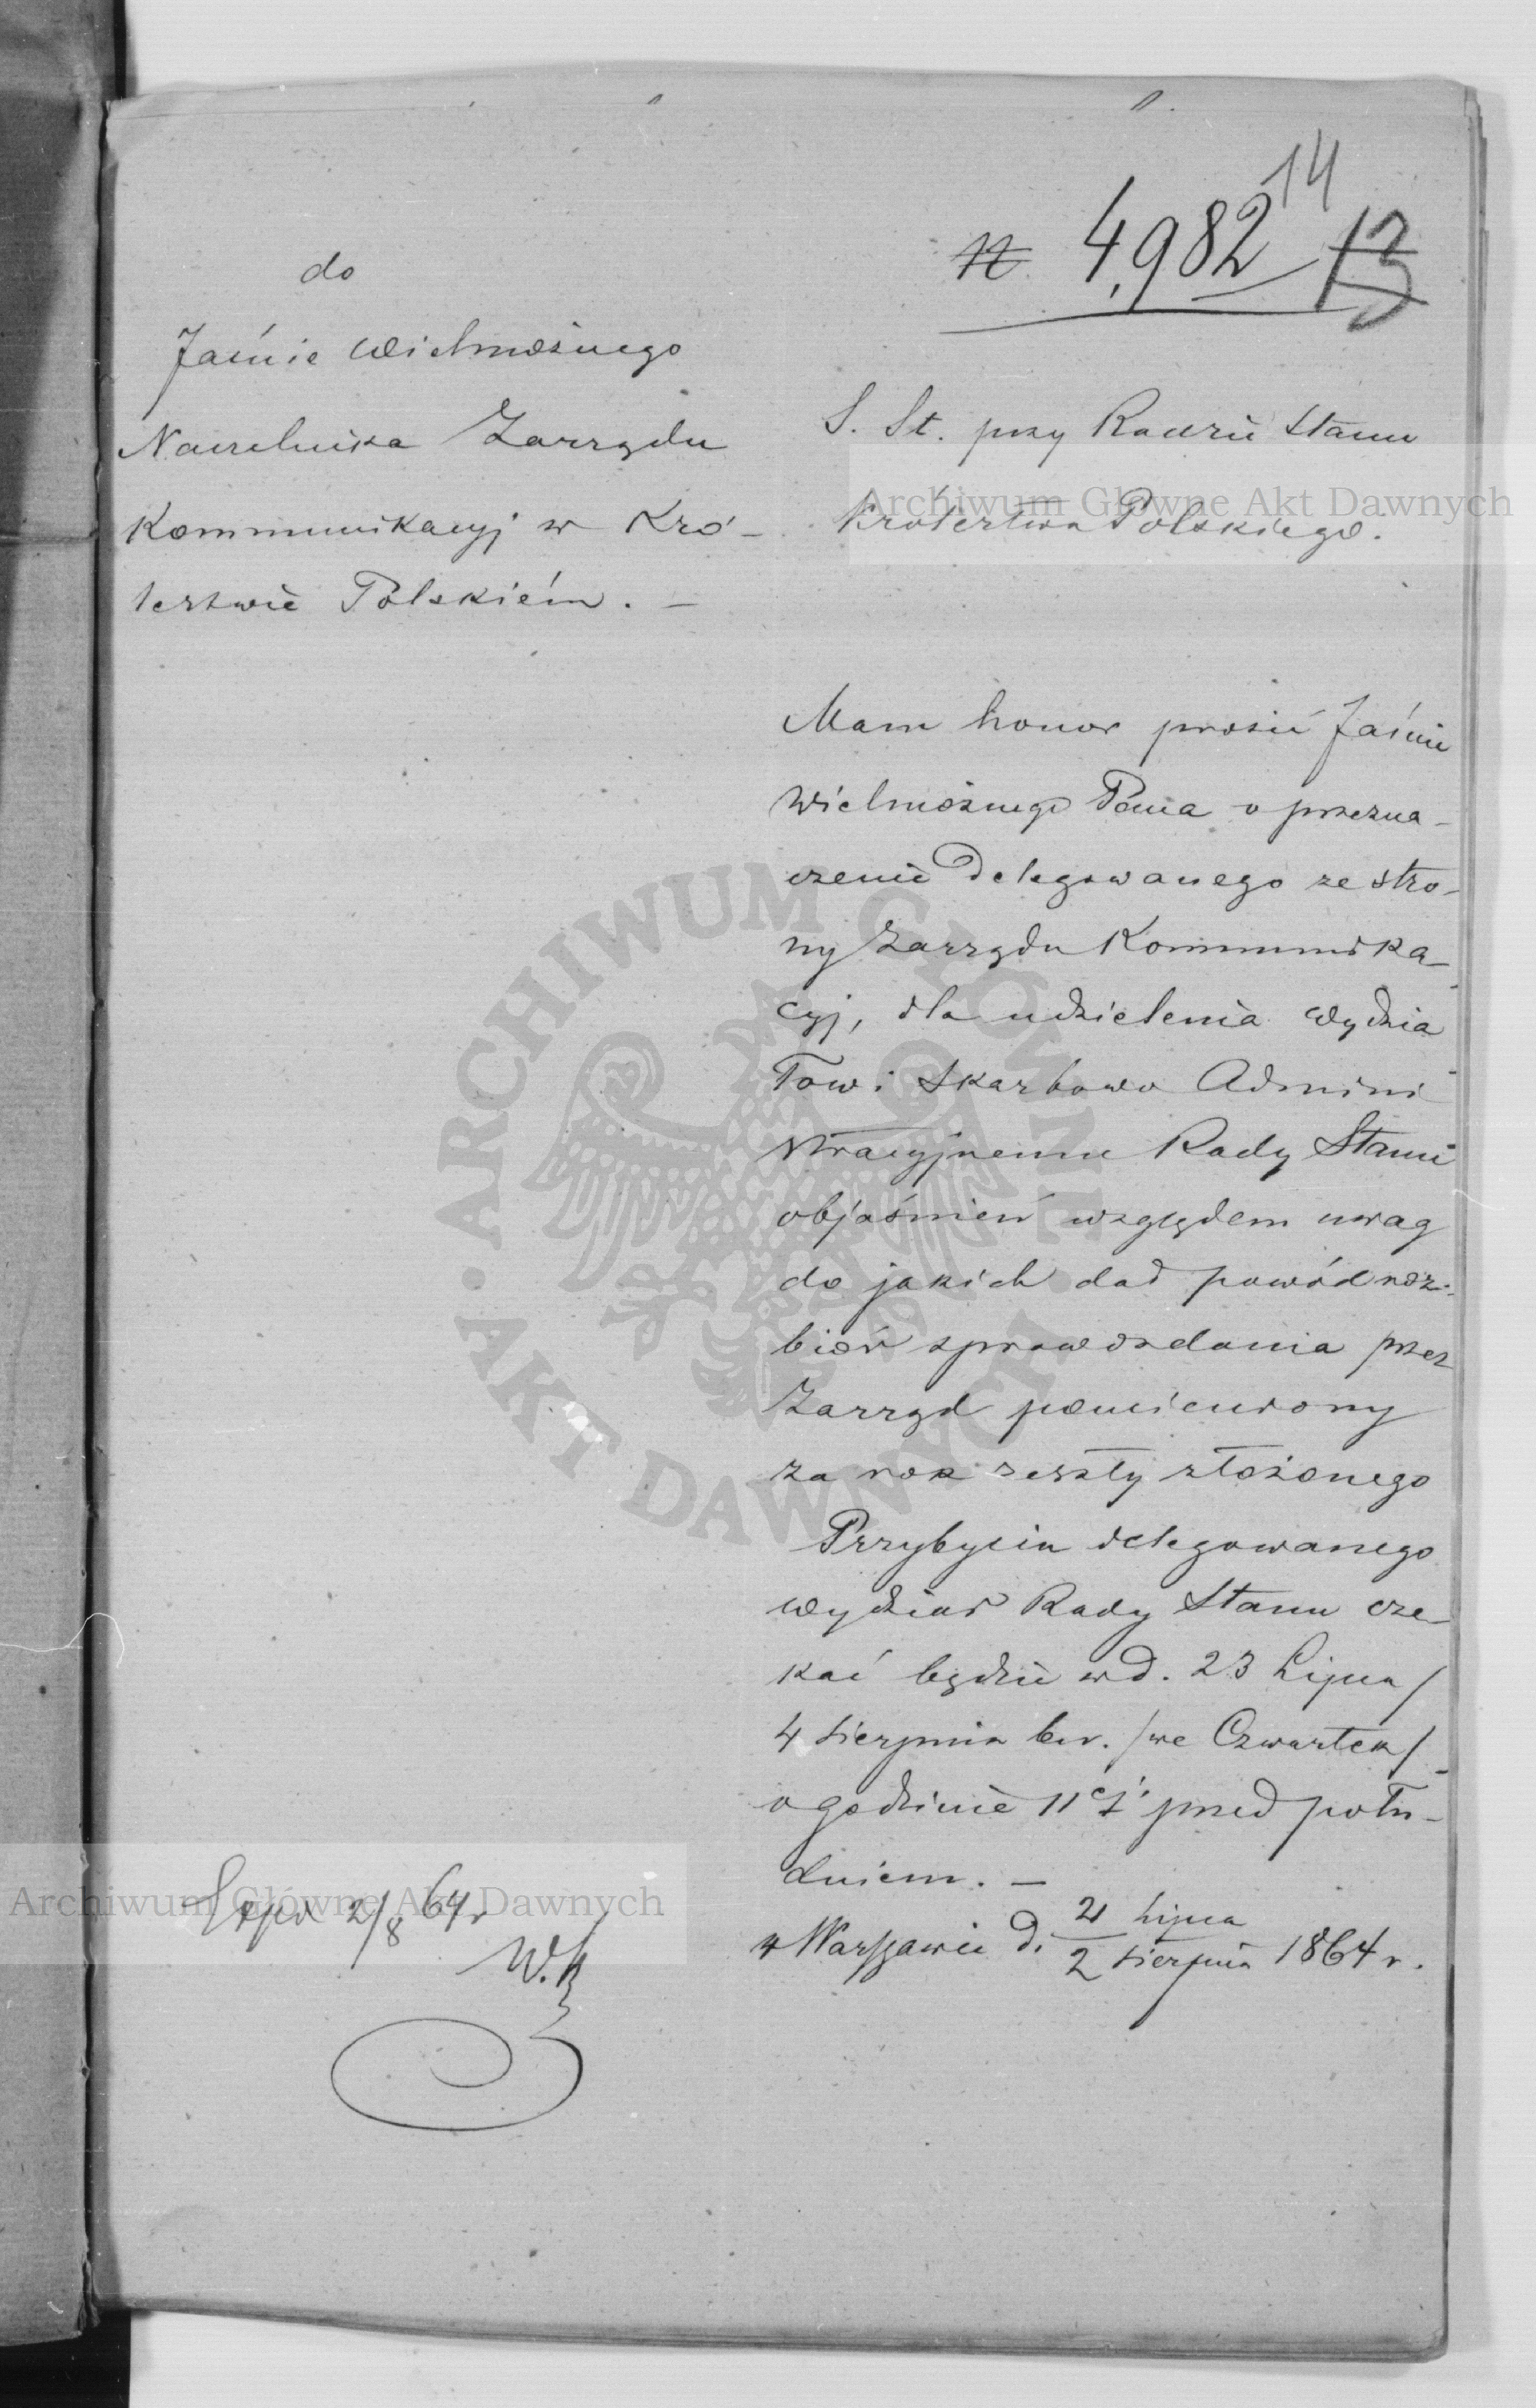 14
№ 4,982 13
do
Jaśnie Wielmożnego
Naczelnika Zarządu
Kommunikacyj w Kró-
lestwie Polskiém. –
S. St. przy Radzie Stanu
Królestwa Polskiego.
Mam honor prosić Jaśnie
Wielmożnego Pana o przezna-
czenie Delegowanego ze stro-
ny Zarządu Kommunika-
cyj, dla udzielenia Wydzia
łowi Skarbowo Admini
stracyjnemu Rady Stanu
objaśnień względem uwag
do jakich dał powód roz-
biór sprawozdania przez
Zarząd pomieniony
za rok zeszły złożonego
Przybycia delegowanego
Wydział Rady Stanu cze-
kać będzie w d. 23 Lipca /
4 Sierpnia b.r. /we Czwartek/
o godzinie 11ej przed połu-
dniem. –
w Warszawie d. 21 Lipca
2 Sierpnia 1864 r.
Exp. 2/8 64 r
Archiwum Główne Akt Dawnych
Archiwum Główne Akt Dawnych
ARCHIWUM GŁÓWNE · AKT DAWNYCH ·